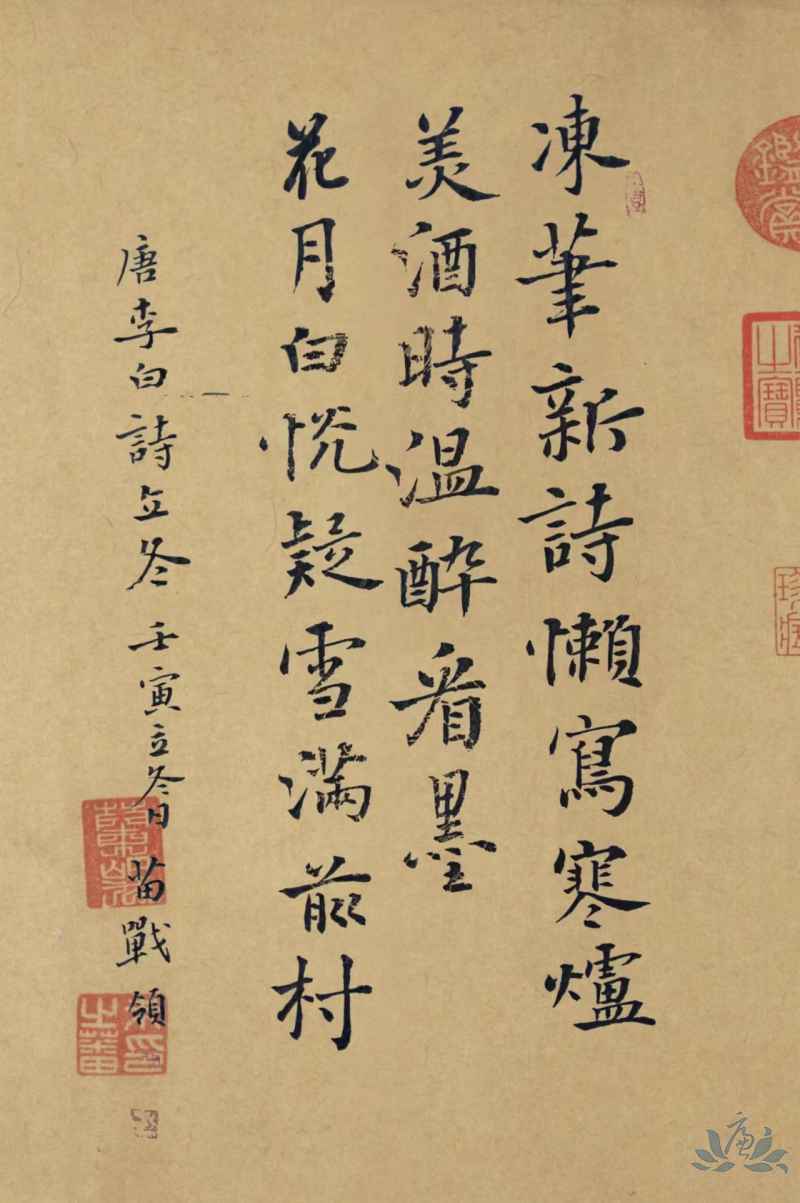 凍筆新詩懶寫寒爐
美酒時温醉看墨
花月白恍疑雪滿前村
唐李白詩立冬 壬寅立冬日 苗戰領
鑑賞
之寶
廉